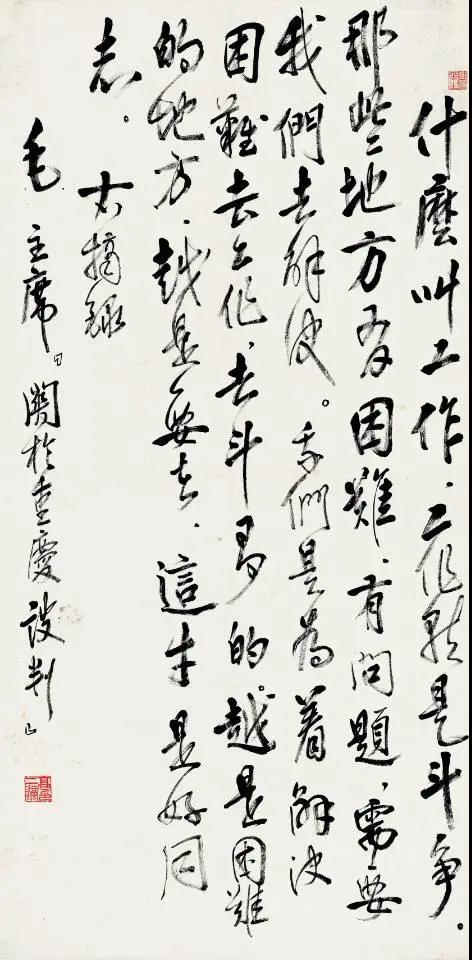 什麼叫工作、工作就是斗争。
那些地方有困難、有問題、需要
我們去解决。我們是為着解决
困難去工作、去斗争的。越是困難
的地方、越是要去、這才是好同
志。右摘録
毛主席「關於重慶談判」